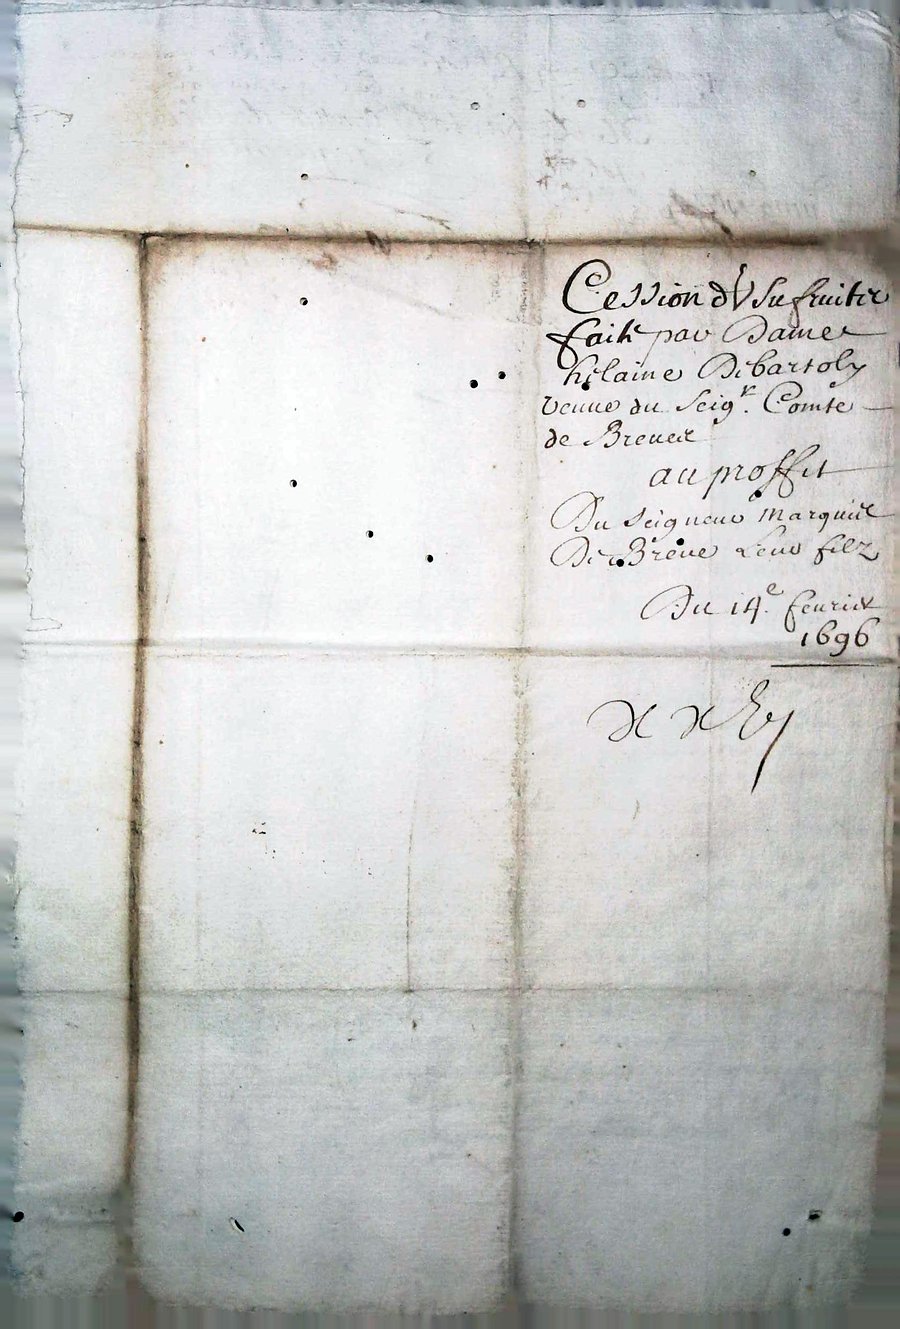 Cession d'Usufruitier
faitte par Dame
hélaine De bartoly
veuue du Seig.r Comte
de Breues
au proffit
Du Seigneur Marquis
De Breve Leur filz
Du 14.e feurier
1696